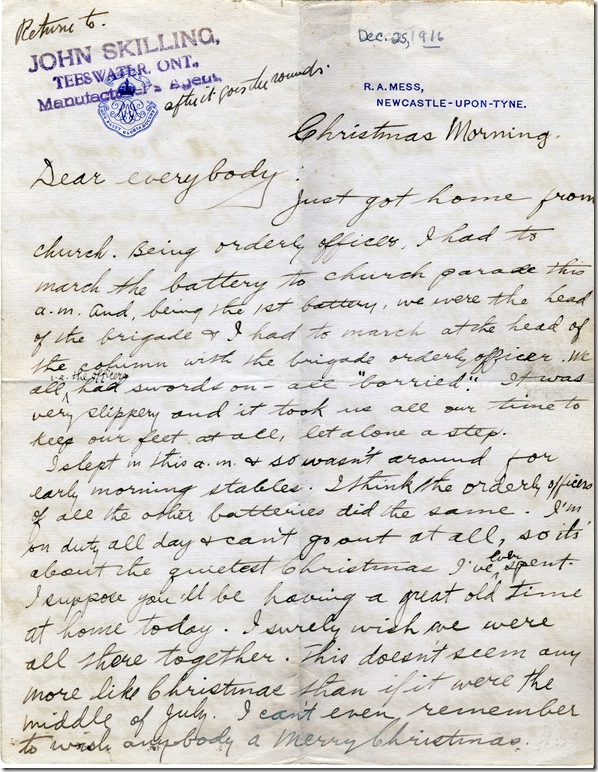 Return to.
JOHN SKILLING,
TEESWATER, ONT.,
Manufacturer's Agent,
after it goes the rounds.
Dec. 25, 1916
R. A. MESS,
NEWCASTLE-UPON-TYNE.
Christmas Morning.
Dear everybody:
Just got home from
church. Being orderly officer, I had to
march the battery to church parade this
a.m. And, being the 1st battery, we were the head
of the brigade & I had to march at the head of
the column with the brigade orderly officer. We
i.e. the officers
all had swords on — all "borried". It was
very slippery and it took us all our time to
keep our feet at all, let alone a step.
I slept in this a.m. & so wasn't around for
early morning stables. I think the orderly officers
of all the other batteries did the same. I'm
on duty all day & can't go out at all, so its
about the quietest Christmas I've ever spent.
I suppose you'll be having a great old time
at home today. I surely wish we were
all there together. This doesn't seem any
more like Christmas than if it were the
middle of July. I can't even remember
to wish anybody a Merry Christmas.